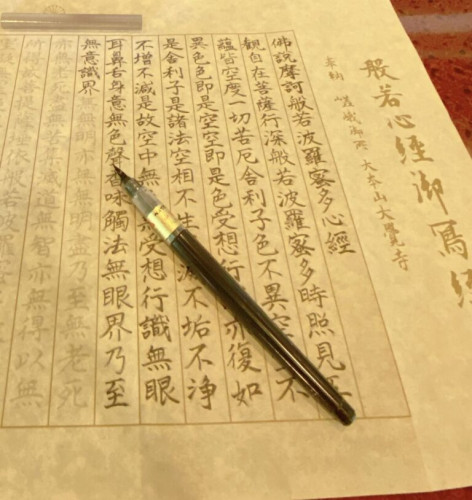 般若心經御寫經
奉納 嵯峨御所 大本山大覺寺
佛説摩訶般若波羅蜜多心經
觀自在菩薩行深般若波羅蜜多時照見
蘊皆空度一切苦厄舍利子色不異空不
異色色即是空空即是色受想行亦復如
是舍利子是諸法空相不生滅不垢不浄
不增不減是故空中無無受想行識無眼
耳鼻舌身意無色聲香味觸法無眼界乃至
無意識界
無明亦無無明盡乃至無老死
道無智亦無得以無
依般若波羅蜜